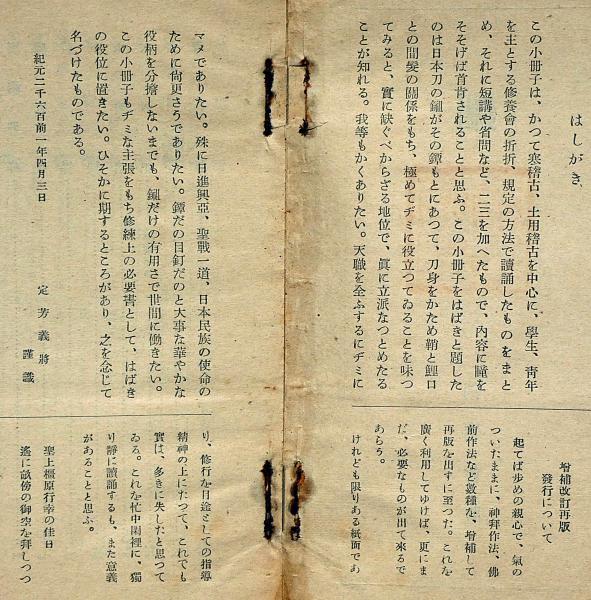 はしがき
この小冊子は、かつて寒稽古、土用稽古を中心に、學生、靑年
を主とする修養會の折折、規定の方法で讀誦したものをまと
め、それに短講や省問など、二三を加へたもので、內容に瞳を
そそげば首肯されることと思ふ。この小冊子をはばきと題した
のは日本刀の鎺がその鐔もとにあつて、刀身をかため鞘と鯉口
との間髮の關係をもち、極めてヂミに役立つてゐることを味つ
てみると、實に缺くべからざる地位で、眞に立派なつとめたる
ことが知れる。我等もかくありたい。天職を全ふするにヂミに
マメでありたい。殊に日進興亞、聖戰一道、日本民族の使命の
ために尙更さうでありたい。鐔だの目釘だのと大事な華やかな
役柄を分擔しないまでも、鎺だけの有用さで世間に働きたい。
この小冊子もヂミな主張をもち修練上の必要書として、はばき
の役位に置きたい。ひそかに期するところがあり、之を念じて
名づけたものである。
紀元二千六百前一年四月三日
定芳義將
謹識
增補改訂再版
發行について
起てば步めの親心で、氣の
ついたままに、神拜作法、佛
前作法など數種を、增補して
再版を出すに至つた。これを
廣く利用してゆけば、更にま
だ、必要なものが出て來るで
あらう。
けれども限りある紙面であ
り、修行を目途としての指導
精神の上にたつて、これでも
實は、多きに失したと思つて
ゐる。これを忙中閑裡に、獨
り靜に讀誦するも、また意義
があることと思ふ。
聖上橿原行幸の佳日
遙に畝傍の御空を拜しつつ